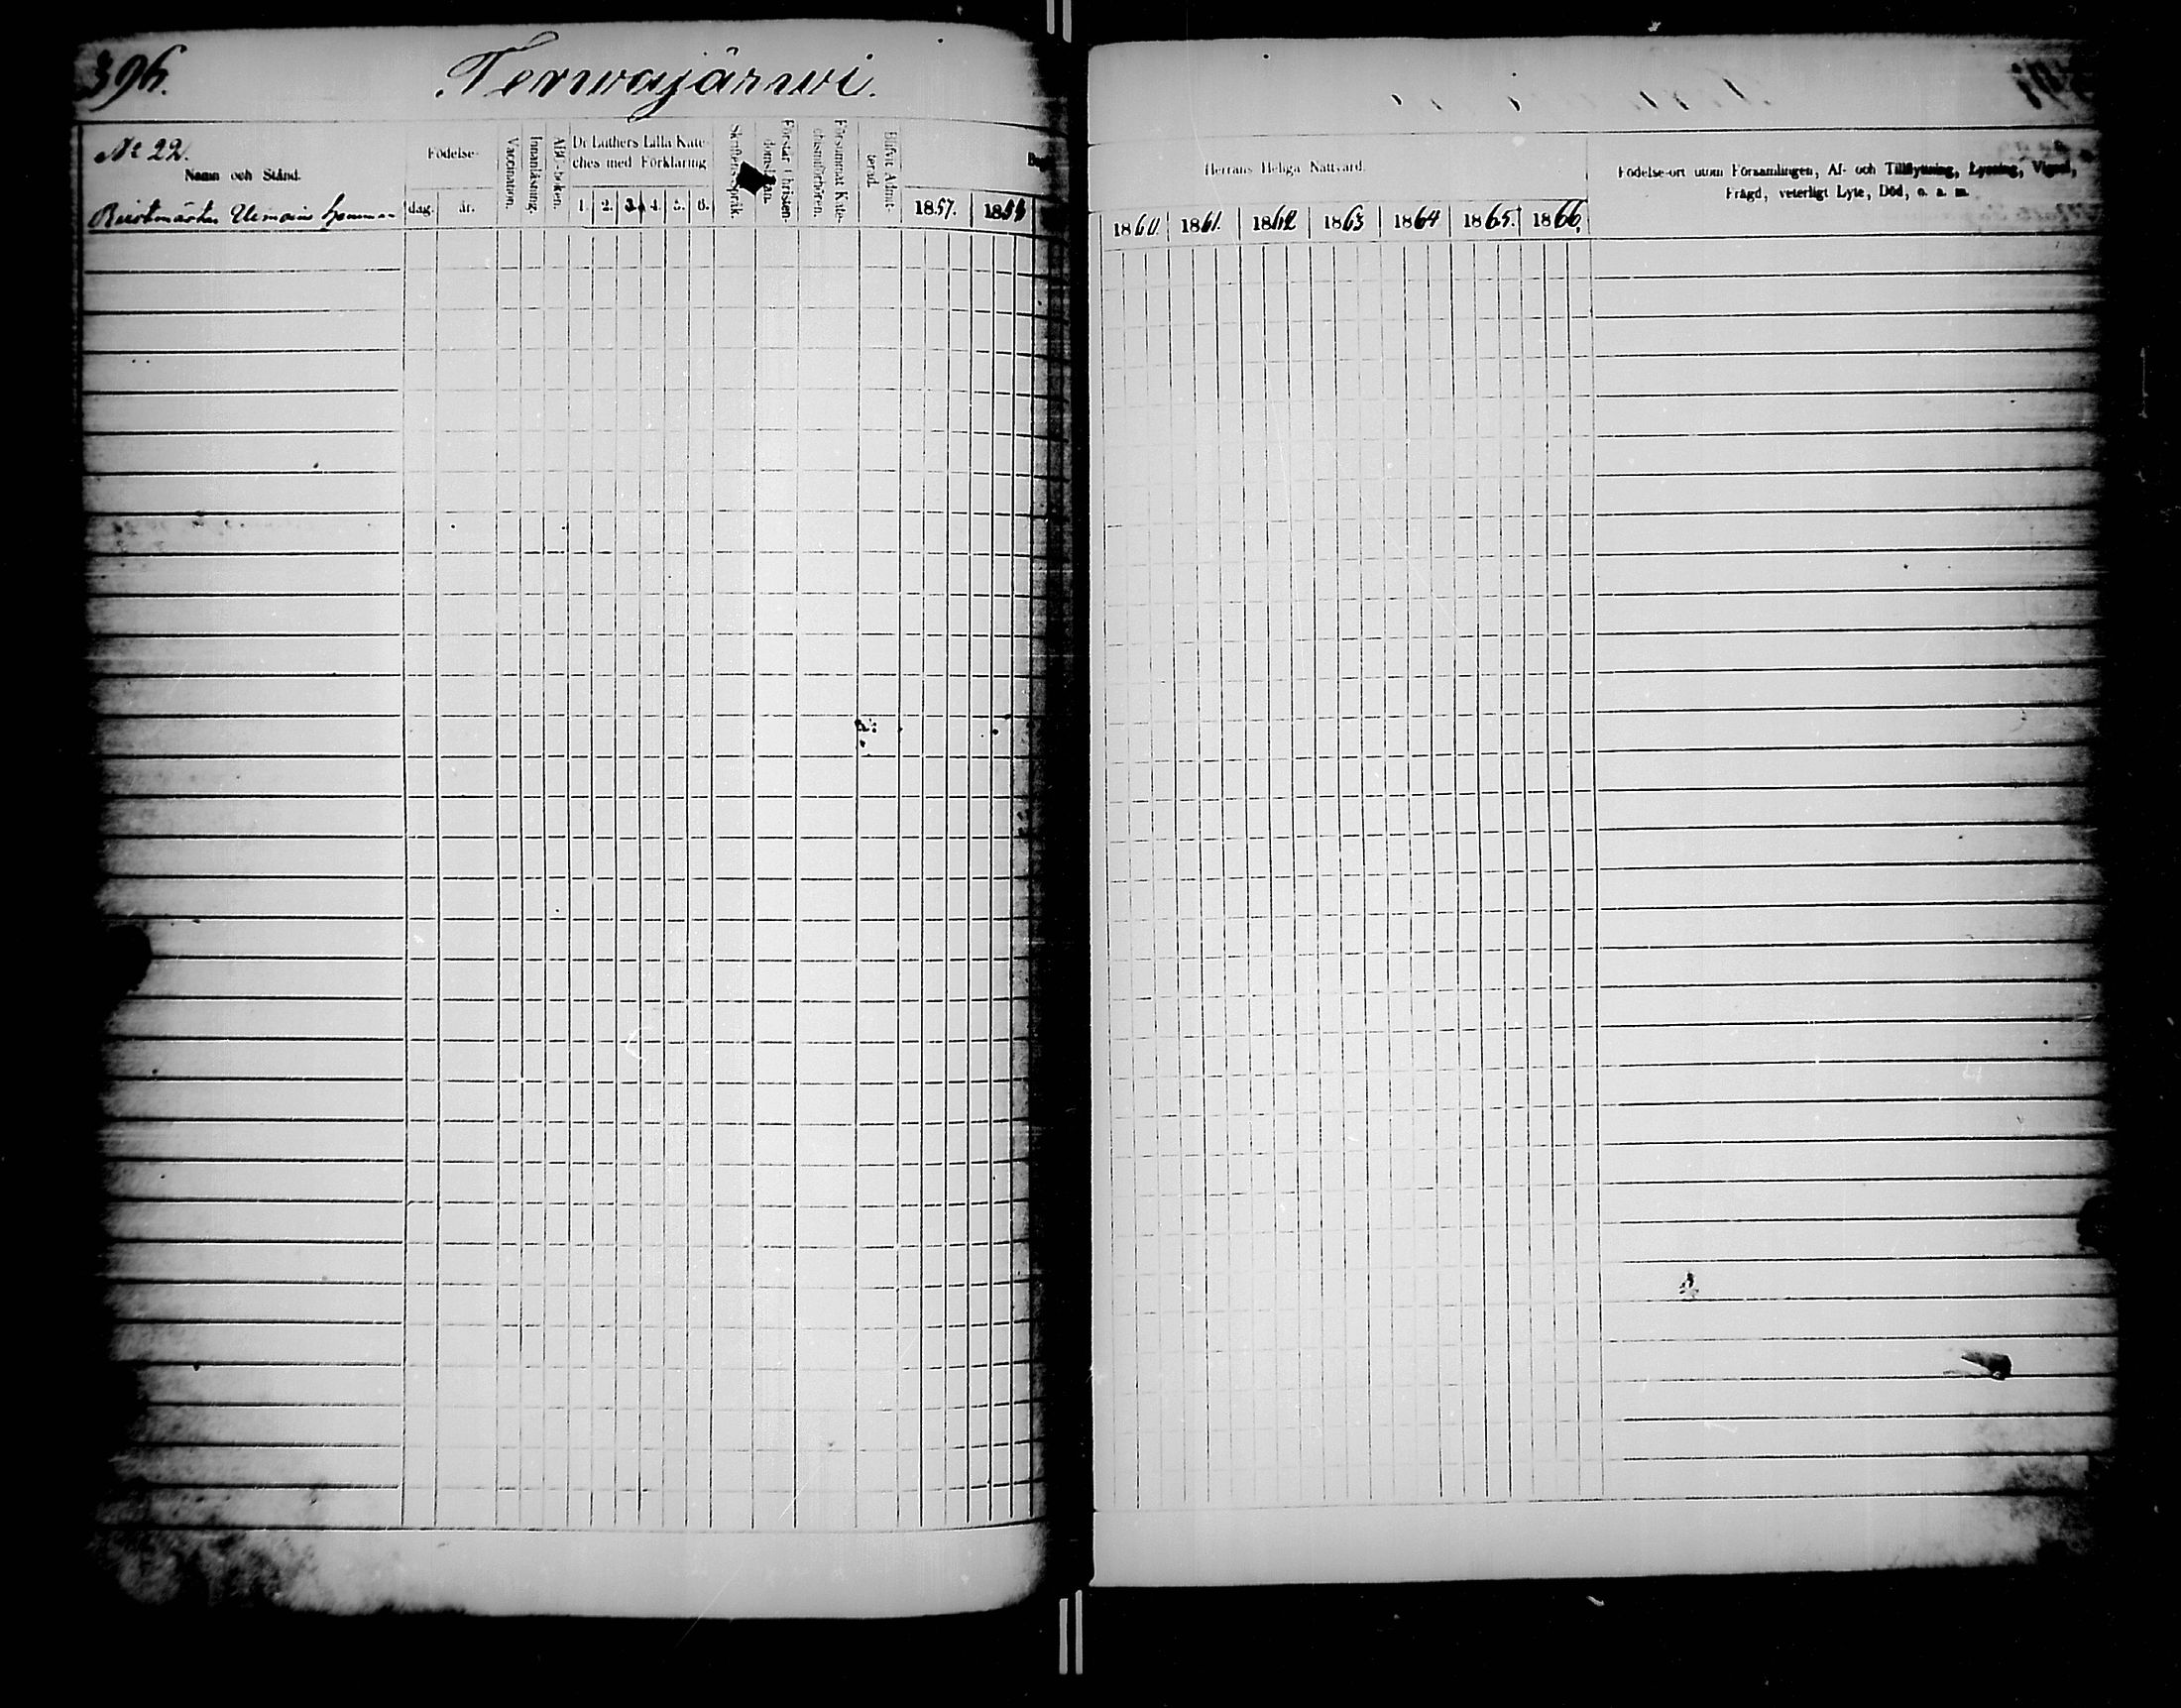 396.
Terwajärwi.
№ 22.
Namn och Stånd.
Födelse-
dag. år.
Vaccination.
Innanläsning.
ABC-boken.
Dr Luthers Lilla Kate-
ches med Förklaring
1. 2. 3. 4. 5. 6.
Skriftens Språk.
Förstår Christen-
Försummat Kate-
chismiförhören.
Blifvit Admit-
terad.
1857. 1858
Herrans Heliga Nattvard.
1860. 1861. 1862 1863 1864 1865. 1866.
Födelse-ort utom Församlingen, Af- och Tillflyttning, Lysning, Vigsel,
Frägd, veterligt Lyte, Död, o. s. m.